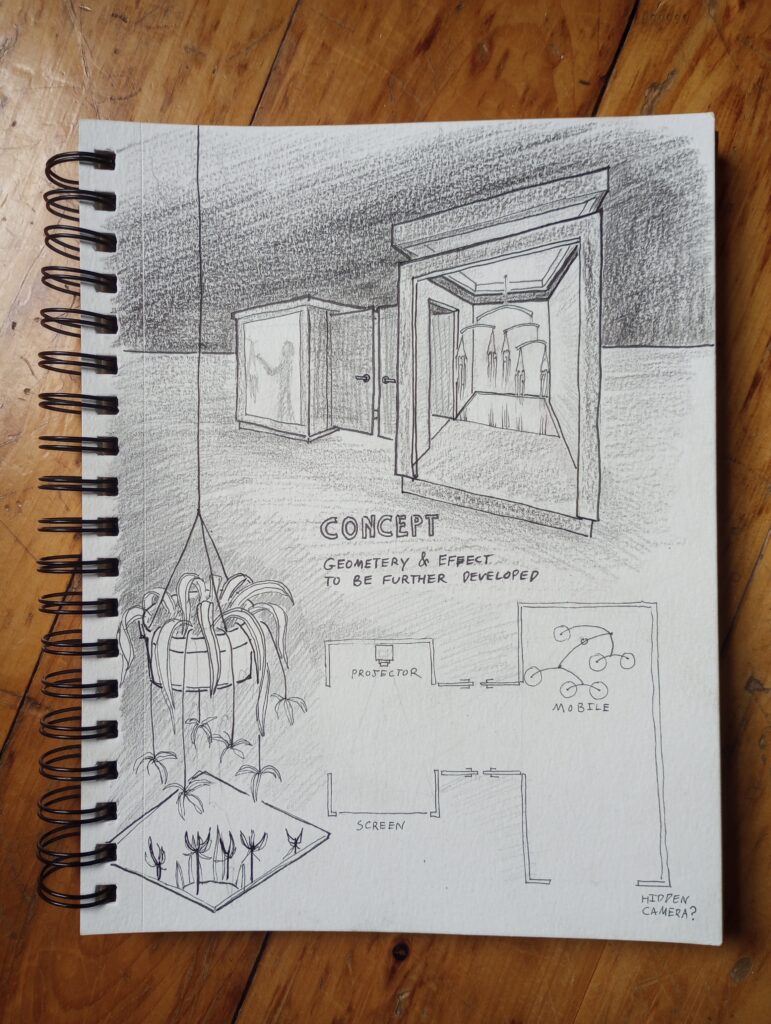 CONCEPT
GEOMETERY & EFFECT
TO BE FURTHER DEVELOPED
PROJECTOR
MOBILE
SCREEN
HIDDEN
CAMERA?